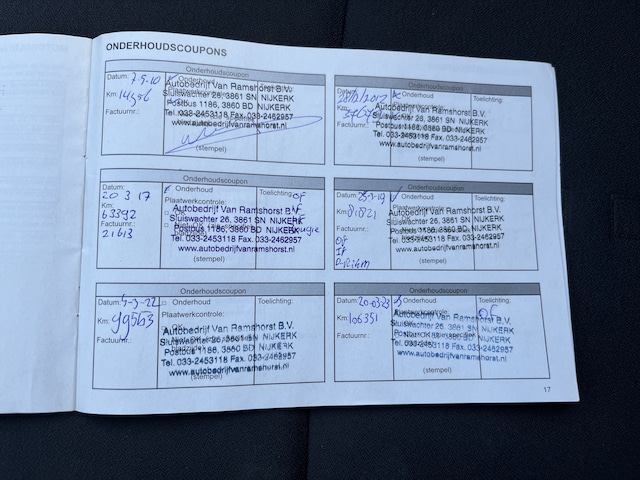 ONDERHOUDSCOUPONS
Onderhoudscoupon
Datum: 7-5-10
Onderhoud
Km:
Factuurnr.:
Autobedrijf Van Ramshorst B.V.
Sluiswachter 26, 3861 SN NIJKERK
Postbus 1186, 3860 BD NIJKERK
Tel. 033-2453118 Fax. 033-2462957
www.autobedrijfvanramshorst.nl
(stempel)
Onderhoudscoupon
Toelichting:
Autobedrijf Van Ramshorst B.V.
Sluiswachter 26, 3861 SN NIJKERK
Postbus 1186, 3860 BD NIJKERK
Tel. 033-2453118 Fax. 033-2462957
www.autobedrijfvanramshorst.nl
(stempel)
Onderhoudscoupon
Datum:
20 3 17
Onderhoud
Toelichting: OF
Km:
63392
Plaatwerkcontrole:
Factuurnr.:
21613
Bougie
Autobedrijf Van Ramshorst B.V.
Sluiswachter 26, 3861 SN NIJKERK
Postbus 1186, 3860 BD NIJKERK
Tel. 033-2453118 Fax. 033-2462957
(stempel)
Onderhoudscoupon
Datum: 25-3-19
Onderhoud
Toelichting:
Km: 81821
Factuurnr.:
OF
Autobedrijf Van Ramshorst B.V.
Sluiswachter 26, 3861 SN NIJKERK
Postbus 1186, 3860 BD NIJKERK
Tel. 033-2453118 Fax. 033-2462957
(stempel)
Onderhoudscoupon
Datum: 4-3-22
Onderhoud
Toelichting:
Km: 99563
Plaatwerkcontrole:
Factuurnr.:
Autobedrijf Van Ramshorst B.V.
Sluiswachter 26, 3861 SN NIJKERK
Postbus 1186, 3860 BD NIJKERK
Tel. 033-2453118 Fax. 033-2462957
www.autobedrijfvanramshorst.nl
(stempel)
Onderhoudscoupon
Datum: 20-03-23
Onderhoud
Toelichting:
OF
Km: 106351
Plaatwerkcontrole:
Factuurnr.:
Autobedrijf Van Ramshorst B.V.
Sluiswachter 26, 3861 SN NIJKERK
Postbus 1186, 3860 BD NIJKERK
Tel. 033-2453118 Fax. 033-2462957
www.autobedrijfvanramshorst.nl
(stempel)
17